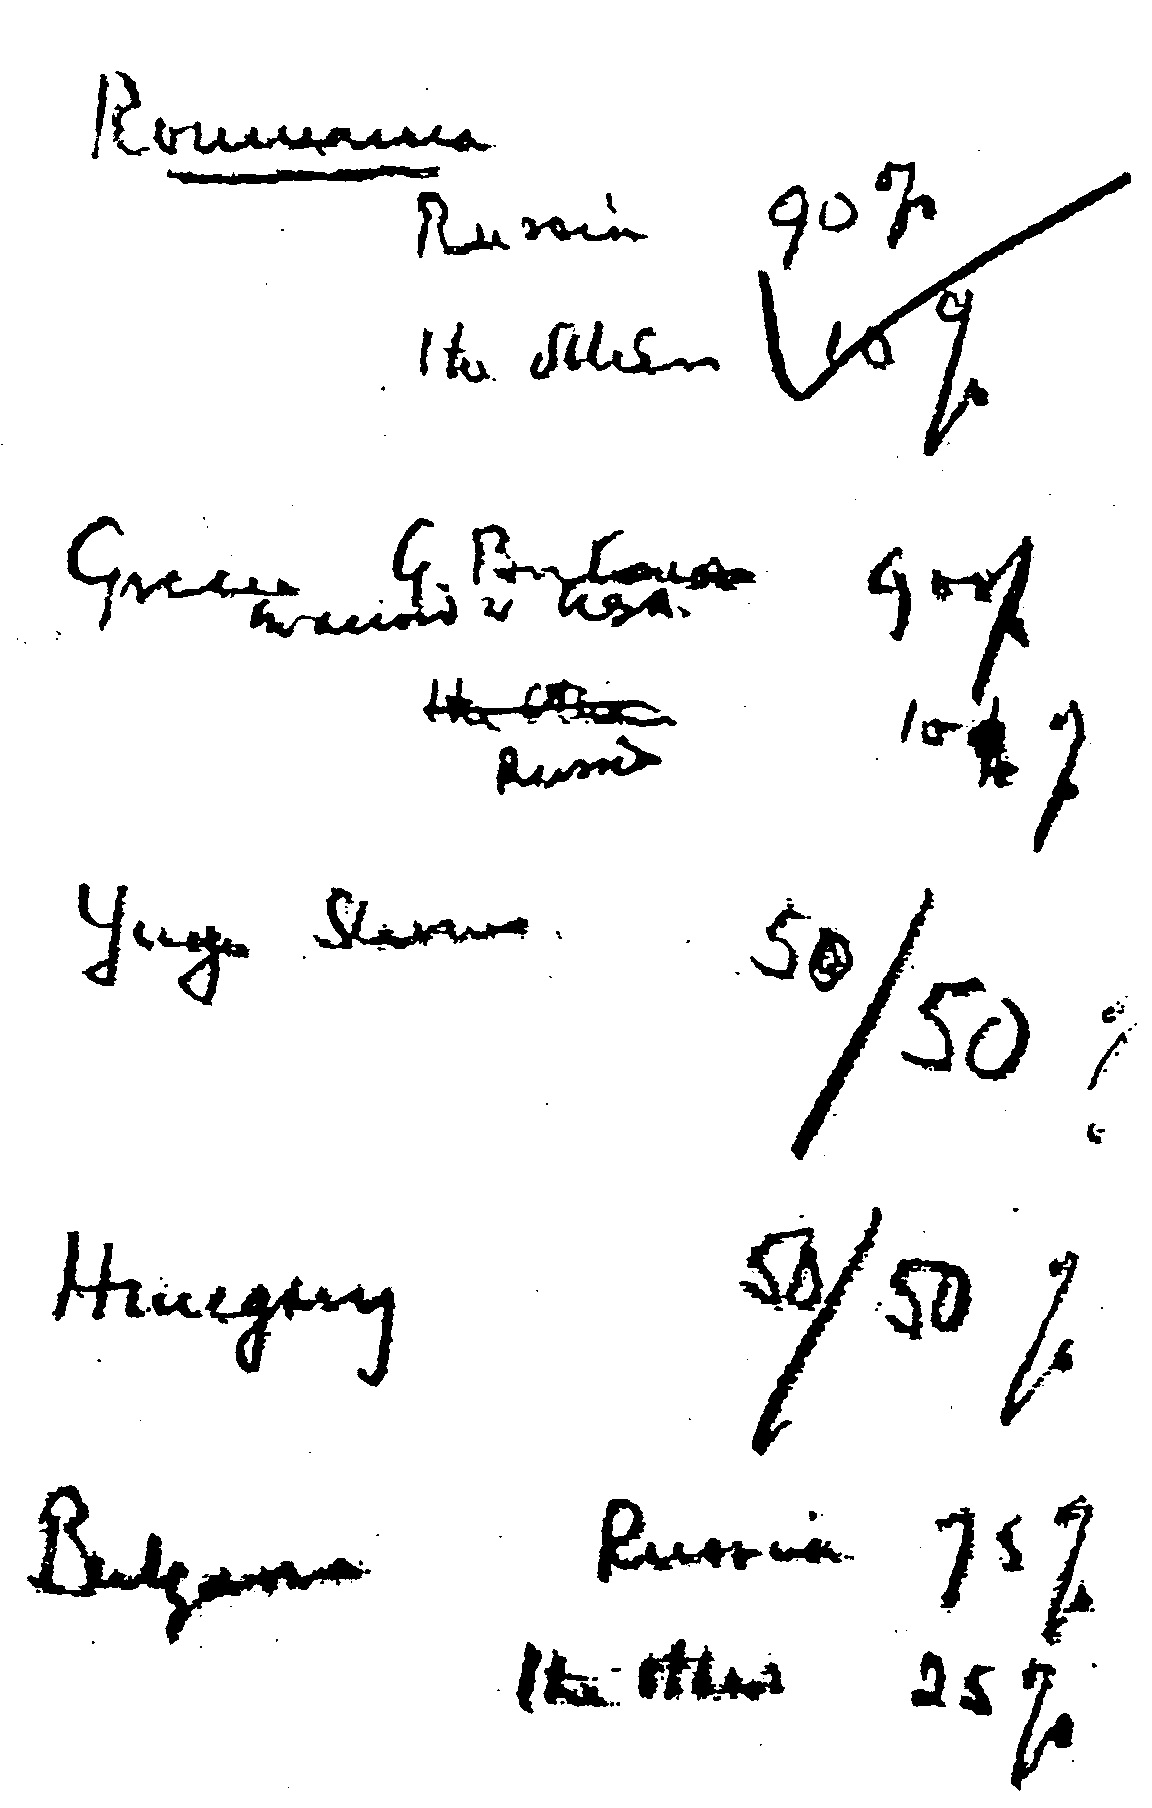 Roumania
Russia 90%
The others 10%
Greece G. Britain 90%
in accord w USA.
The Others 10%
Russia
Yugo Slavia 50/50%
Hungary 50/50%
Bulgaria Russia 75%
The others 25%